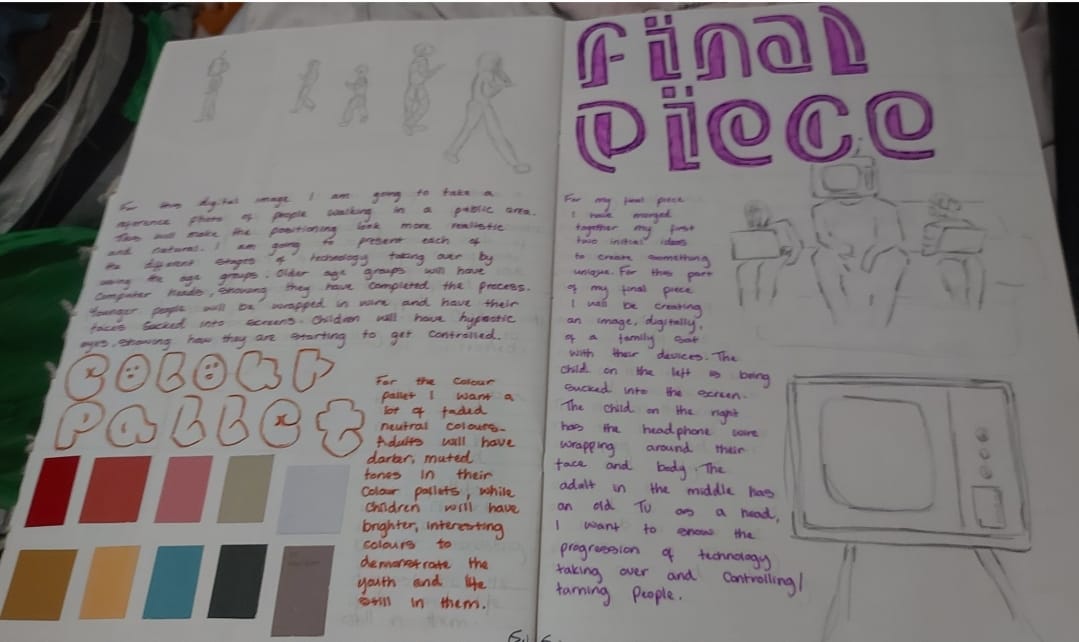 For this digital image I am going to take a
reference photo of people walking in a public area.
This will make the positioning look more realistic
and natural. I am going to present each of
the different stages of technology taking over by
using the age groups. Older age groups will have
Computer heads, showing they have completed the process.
Younger people will be wrapped in wire and have their
faces sucked into screens. Children will have hypnotic
eyes, showing how they are starting to get controlled.
COLOUR
Pallet
For the Colour
pallet I want a
lot of faded
neutral colours.
Adults will have
darker, muted
tones in their
Colour pallets, while
children will have
brighter, interesting
colours to
demonstrate the
youth and life
still in them.
Final
Piece
For my final piece
I have merged
together my first
two initial ideas
to create something
unique. For this part
of my final piece
I will be creating
an image, digitally,
of a family sat
with their devices. The
child on the left is being
sucked into the screen.
The child on the right
has the headphone wire
wrapping around their
face and body. The
adult in the middle has
an old TV as a head,
I want to show the
progression of technology
taking over and controlling/
tarning people.